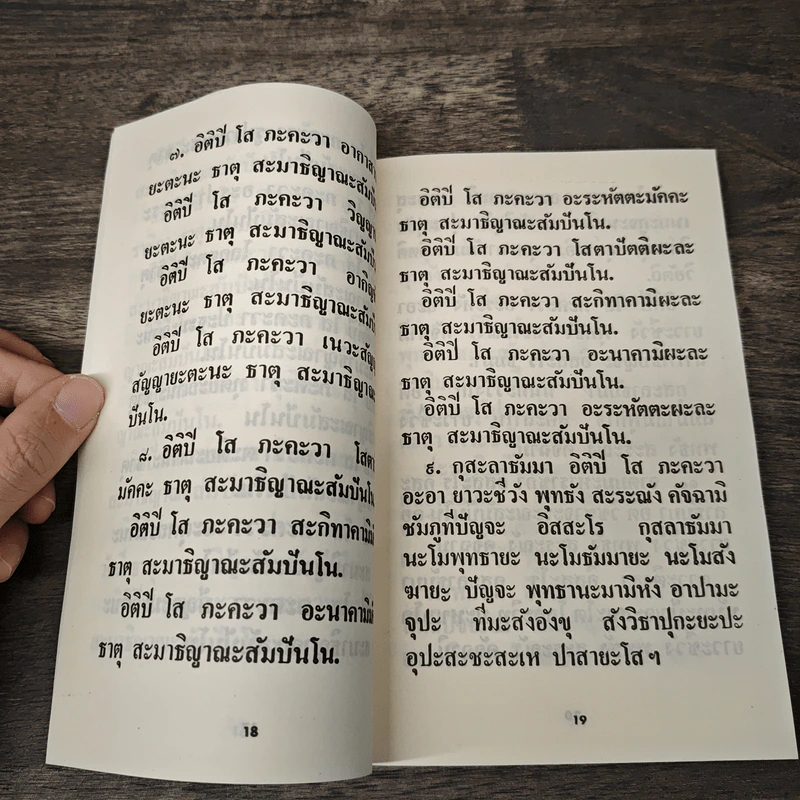 ๗. อิติปิ โส ภะคะวา อากาส
ยะตะนะ ธาตุ สะมาธิญาณะสัมปั
อิติปิ โส ภะคะวา วิญญา
ยะตะนะ ธาตุ สะมาธิญาณะสัมปั
อิติปิ โส ภะคะวา อากิญ
ยะตะนะ ธาตุ สะมาธิญาณะสัมปั
อิติปิ โส ภะคะวา เนวะสัญ
สัญญายะตะนะ ธาตุ สะมาธิญาณะ
ปันโน.
๘. อิติปิ โส ภะคะวา โสตา
มัคคะ ธาตุ สะมาธิญาณะสัมปันโน
อิติปิ โส ภะคะวา สะกิทาคามิ
ธาตุ สะมาธิญาณะสัมปันโน.
อิติปิ โส ภะคะวา อะนาคามิ
ธาตุ สะมาธิญาณะสัมปันโน.
18
อิติปิ โส ภะคะวา อะระหัตตะมัคคะ
ธาตุ สะมาธิญาณะสัมปันโน.
อิติปิ โส ภะคะวา โสตาปัตติผะละ
ธาตุ สะมาธิญาณะสัมปันโน.
อิติปิ โส ภะคะวา สะกิทาคามิผะละ
ธาตุ สะมาธิญาณะสัมปันโน.
อิติปิ โส ภะคะวา อะนาคามิผะละ
ธาตุ สะมาธิญาณะสัมปันโน.
อิติปิ โส ภะคะวา อะระหัตตะผะละ
ธาตุ สะมาธิญาณะสัมปันโน.
๙. กุสะลาธัมมา อิติปิ โส ภะคะวา
อะอา ยาวะชีวัง พุทธัง สะระณัง คัจฉามิ
ชัมภูทีปัญจะ อิสสะโร กุสลาธัมมา
นะโมพุทธายะ นะโมธัมมายะ นะโมสัง
ฆายะ ปัญจะ พุทธานะมามิหัง อาปามะ
จุปะ ทีมะสังอังขุ สังวิธาปุกะยะปะ
อุปะสะชะสะเห ปาสายะโสฯ
19